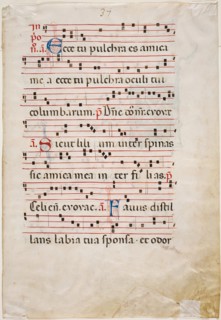 37
in
po
n. a. Ecce tu pulchra es amica
me a ecce tu pulchra oculi tui
columbarum. p. Dne
a. Sicut lili um inter spinas
sic amica mea in ter fi li as. p.
Celi en. evovae. a. Favus distil
lans labia tua sponsa. et odor